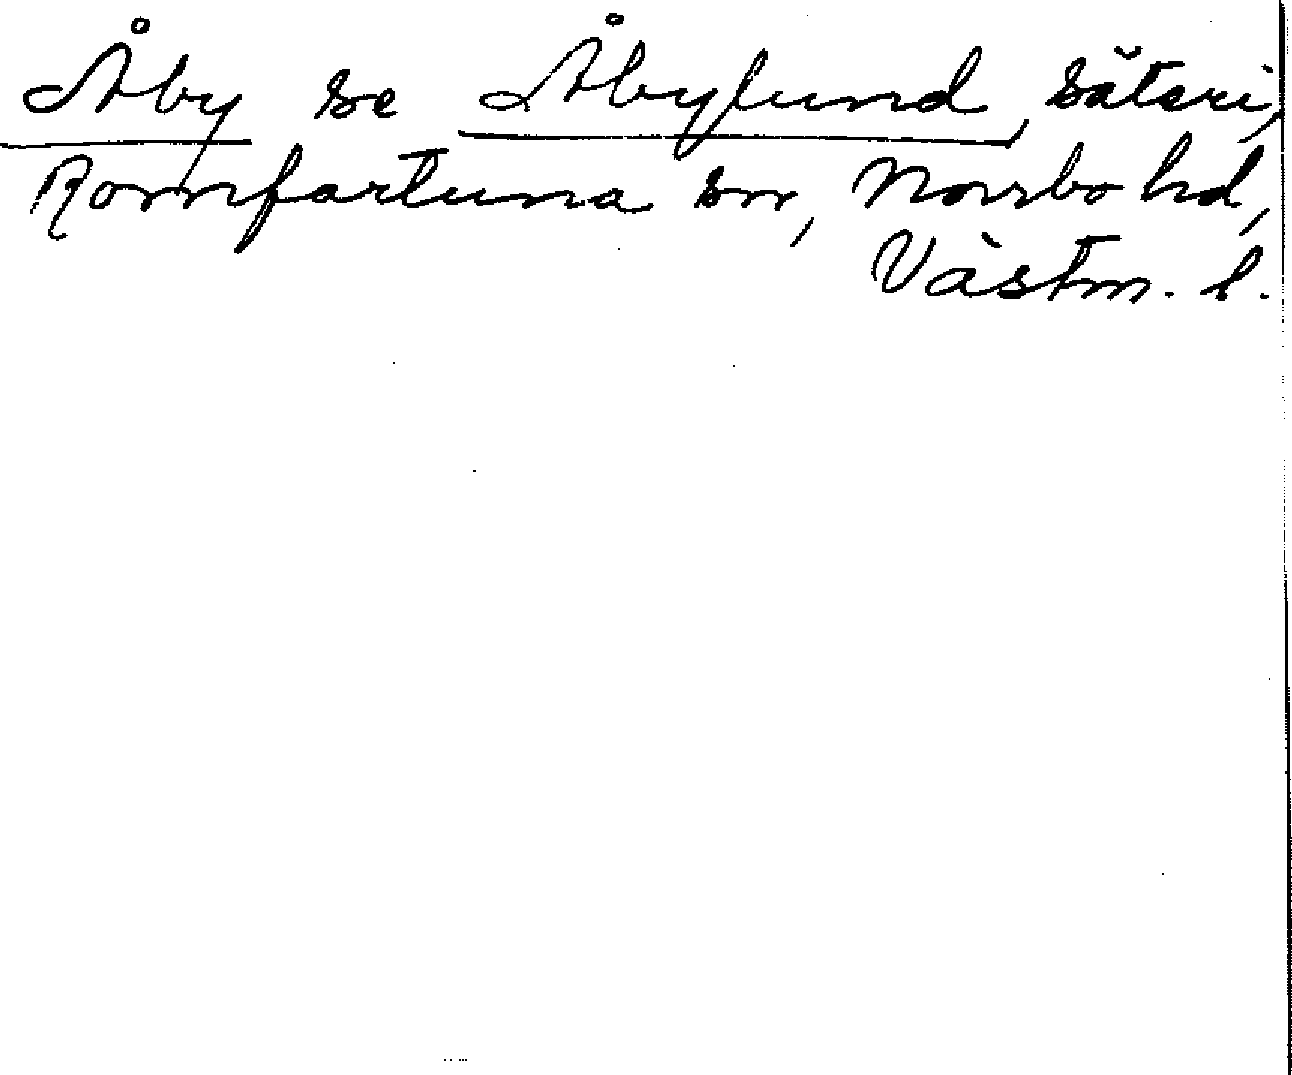 Åby se Åbylund, säteri,
Romfartuna sn, Norrbo hd,
Västm. l.